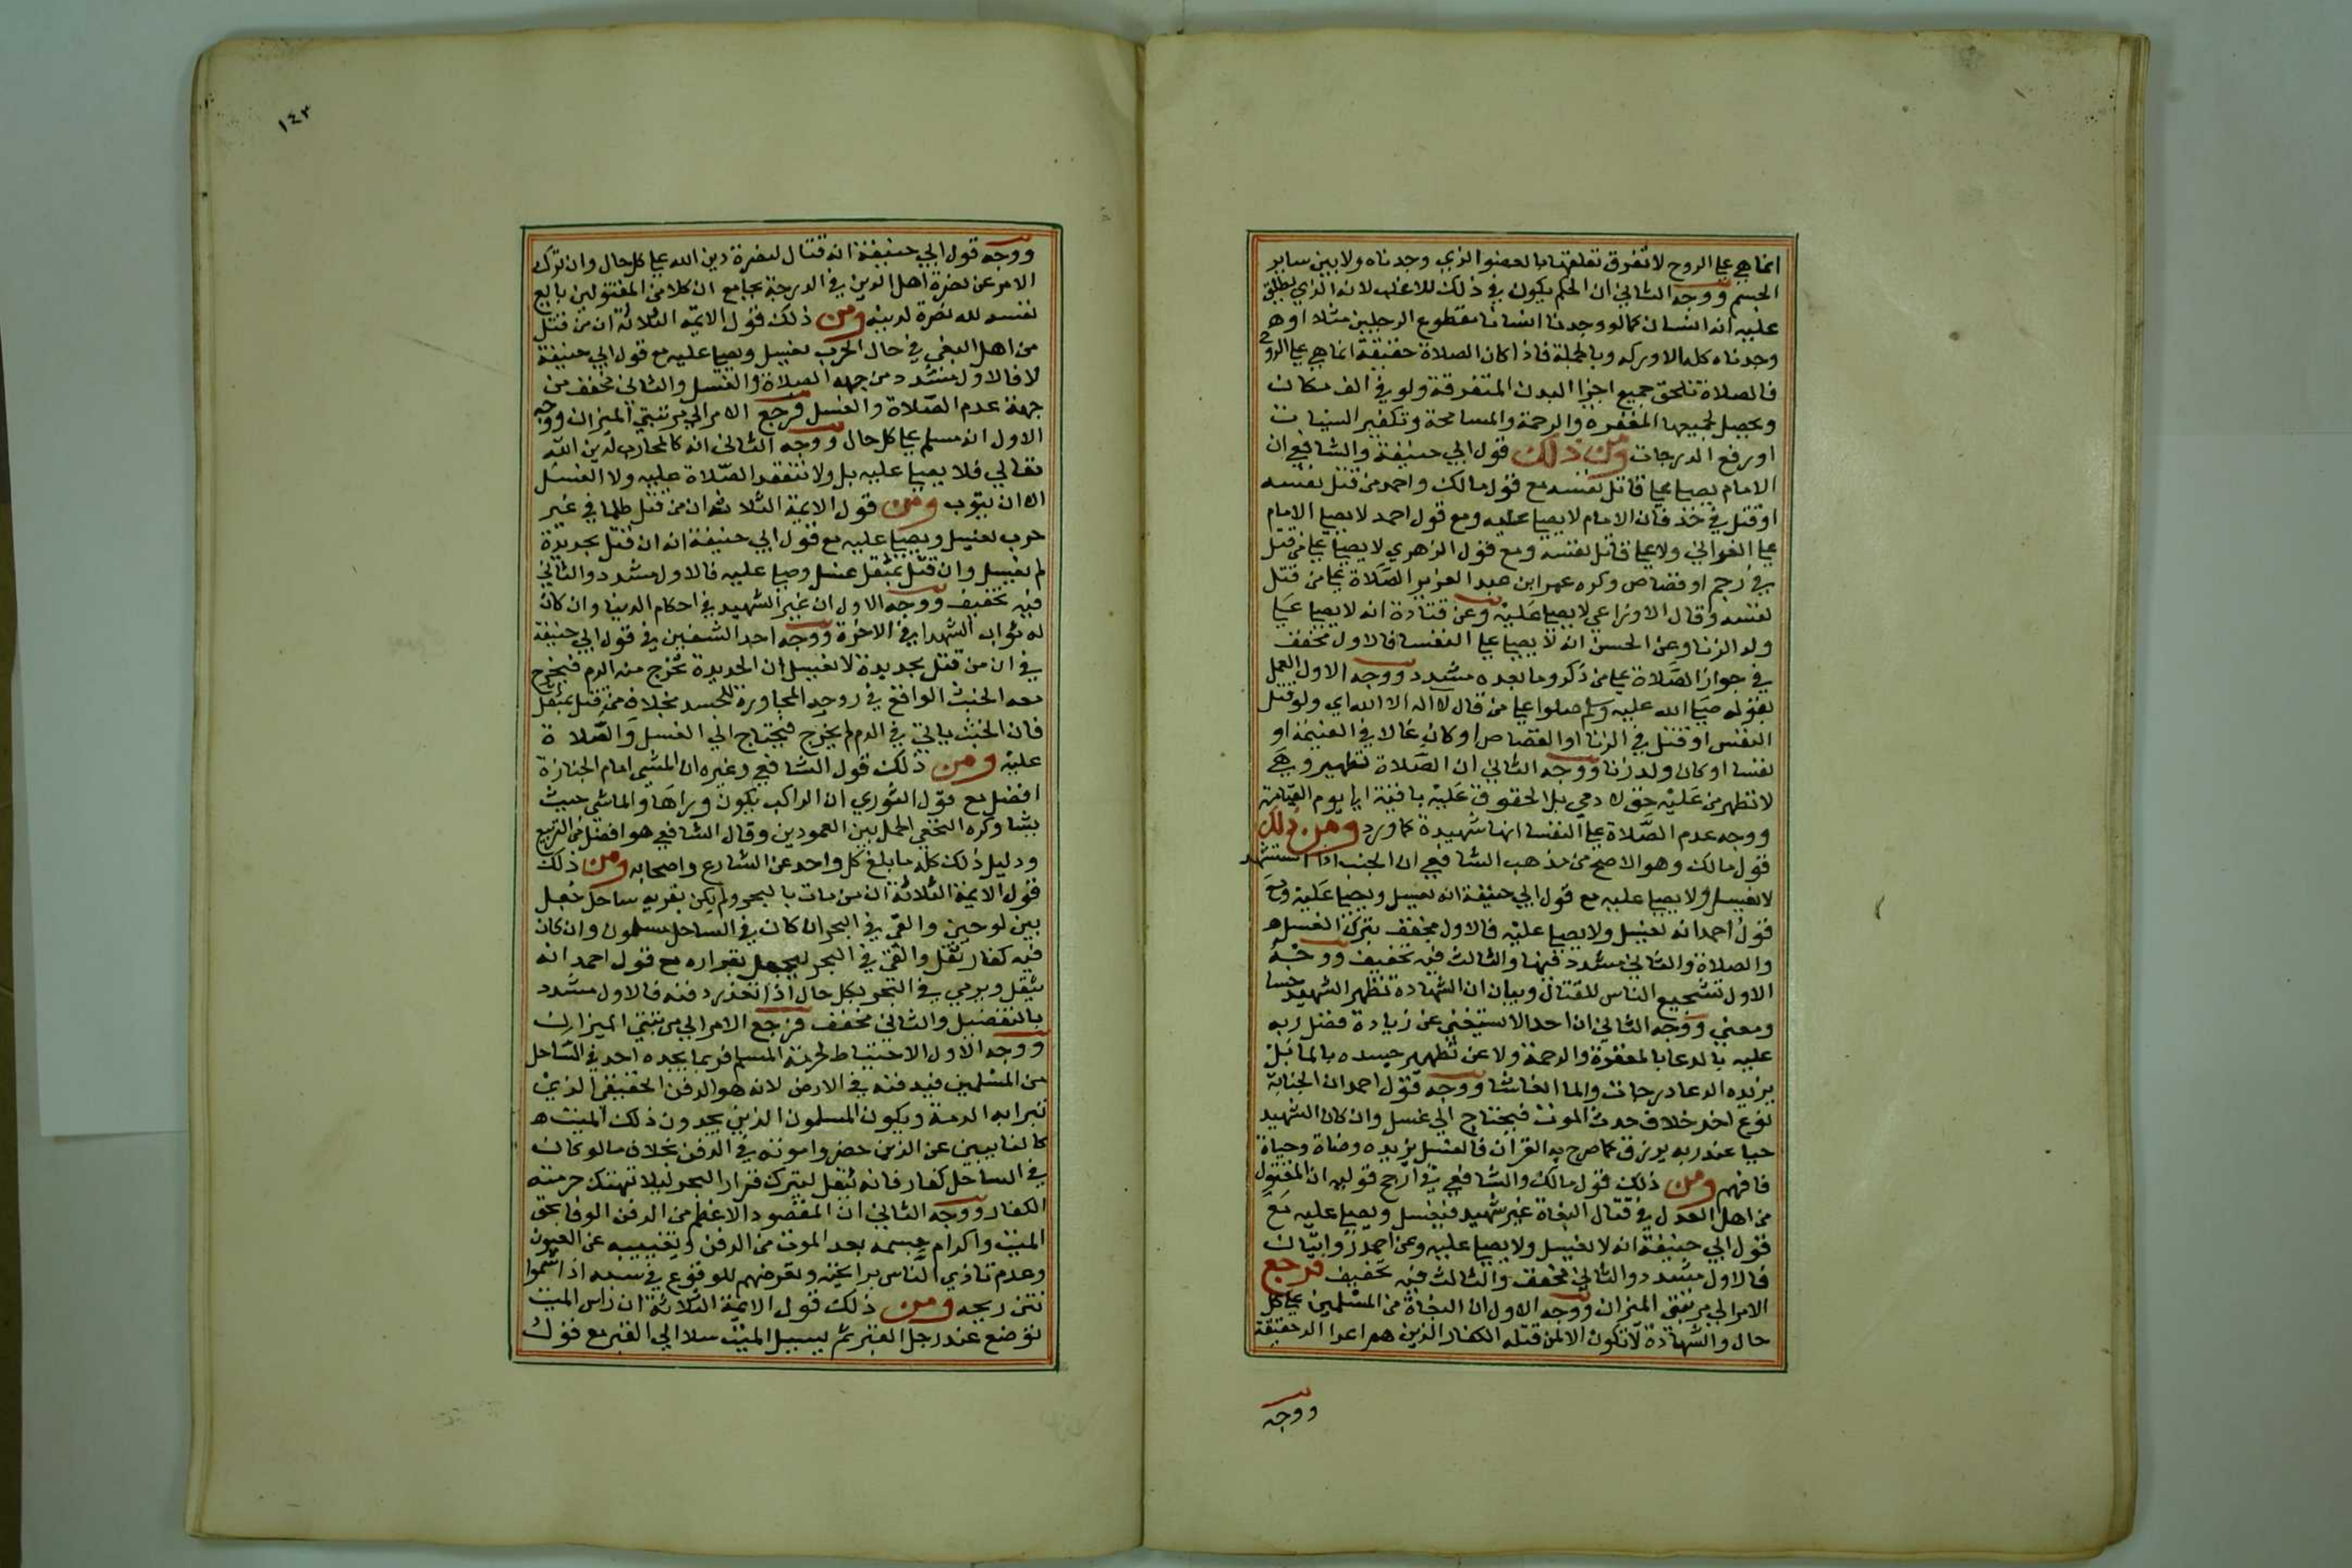 انما هي علي الروح لا تفرق تعلقها بالعضو الذي وجدناه ولا بين ساير
الجسم ووجه الثاني ان الحكم يكون في ذلك للاغلب لانه الذي يطلق
عليه انه انسان كما لو وجدنا انسانا مقطوع الرجلين مثلا او
وجدناه كله الا وركه وبالجملة فاذا كان الصلاة حقيقة انما هي علي الروح
فالصلاة تلحق جميع اجزا البدن المتفرقة ولو في الف مكان
ويحصل لجميعها المغفرة والرحمة والمسامحة وتكفير السيئات
او رفع الدرجات ومن ذلك قول ابي حنيفة والشافعي ان
الامام يصلي علي قاتل نفسه مع قول مالك واحمد من قتل نفسه
او قتل في حد فان الامام لا يصلي عليه ومع قول احمد لا يصلي الامام
علي الغواني ولا علي قاتل نفسه ومع قول الزهري لا يصلي علي من قتل
في رجم او قصاص وكره عمر ابن عبد العزيز الصلاة علي من قتل
نفسه وقال الاوزاعي لا يصلي عليه وعن قتادة انه لا يصلي علي
ولد الزنا وعن الحسن انه لا يصلي علي النفسا فالاول مخفف
في جواز الصلاة علي من ذكر وما بعده مشدد ووجه الاول العمل
بقوله صلي الله عليه وسلم صلوا علي من قال لا اله الا الله اي ولو قتل
النفس او قتل في الزنا او القصاص او كان غالا في الغنيمة او
نفسا او كان ولد زنا ووجه الثاني ان الصلاة تطهير وهي
لا تطهر من عليه حق لادمي بل الحقوق عليه باقية الي يوم القيامة
ووجه عدم الصلاة علي النفسا انها شهيدة كما ورد ومن ذلك
قول مالك وهو الاصح من مذهب الشافعي ان الجنب اذا استشهد
لا يغسل ولا يصلي عليه مع قول ابي حنيفة انه يغسل ويصلي عليه ومع
قول احمد انه يغسل ولا يصلي عليه فالاول مخفف بترك الغسل
والصلاة والثاني مشدد فيهما والثالث فيه تخفيف ووجه
الاول تشجيع الناس للقتال وبيان ان الشهادة تطهر الشهيد حسا
ومعني ووجه الثاني ان احدا لا يستغني عن زيادة فضل ربه
عليه بالدعا بالمغفرة والرحمة ولا عن تطهير جسده بالما بل
يزيده الدعا درجات والما انعاشا ووجه قول احمد ان الجنابة
نوع اخر خلاف حدث الموت فيحتاج الي غسل وان كان الشهيد
حيا عند ربه يرزق كما صرح به القران فالغسل يزيده وضاة وحياة
فافهم ومن ذلك قول مالك والشافعي في ارجح قوليه ان المقتول
من اهل العدل في قتال البغاة غير شهيد فيغسل ويصلي عليه مع
قول ابي حنيفة انه لا يغسل ولا يصلي عليه وعن احمد روايتان
فالاول مشدد والثاني مخفف والثالث فيه تخفيف فرجع
الامر الي مرتبتي الميزان ووجه الاول ان البغاة من المسلمين علي كل
حال والشهادة لا تكون الا لمن قتله الكفار الذين هم اعدا الله حقيقة
ووجه
١٤٣
ووجه قول ابي حنيفة انه قتال لنصرة دين الله علي كل حال وان ترك
الامر عن نصرة اهل الدين في الدرجة بجامع ان كلا من المقتولين بايع
نفسه لله نصرة لدينه ومن ذلك قول الايمة الثلاثة ان من قتل
من اهل البغي في حال الحرب يغسل ويصلي عليه مع قول ابي حنيفة
لا فالاول مشدد من جهة الصلاة والغسل والثاني مخفف من
جهة عدم الصلاة والغسل فرجع الامر الي مرتبتي الميزان ووجه
الاول انه مسلم علي كل حال ووجه الثاني انه كالمحارب لدين الله
تعالي فلا يصلي عليه بل ولا تنعقد الصلاة عليه ولا الغسل
الا ان يتوب ومن قول الايمة الثلاثة ان من قتل ظلما في غير
حرب يغسل ويصلي عليه مع قول ابي حنيفة انه ان قتل بحديدة
لم يغسل وان قتل بمثقل غسل وصلي عليه فالاول مشدد والثاني
فيه تخفيف ووجه الاول ان غير الشهيد في احكام الدنيا وان كان
له ثواب الشهدا في الاخرة ووجه احد الشقين في قول ابي حنيفة
في ان من قتل بحديدة لا يغسل ان الحديدة تخرج منه الدم فيخرج
معه الخبث الواقع في روحه المجاورة للجسد بخلاف من قتل بمثقل
فان الخبث باق في الدم لم يخرج فيحتاج الي الغسل والصلاة
عليه ومن ذلك قول الشافعي وغيره ان المشي امام الجنازة
افضل مع قول الثوري ان الراكب يكون وراها والماشي حيث
يشا وكره النخعي الحمل بين العمودين وقال الشافعي هو افضل من التربيع
ودليل ذلك كله ما بلغ كل واحد عن الشارع واصحابه ومن ذلك
قول الايمة الثلاثة ان من مات بالبحر ولم يكن بقربه ساحل جعل
بين لوحين والقي في البحر ان كان في الساحل مسلمون وان كان
فيه كفار ثقل والقي في البحر ليحصل بقراره مع قول احمد انه
يثقل ويرمي في البحر بكل حال اذا تعذر دفنه فالاول مشدد
بالتفصيل والثاني مخفف فرجع الامر الي مرتبتي الميزان
ووجه الاول الاحتياط لحرمة المسلم فربما يجده احد في الساحل
من المسلمين فيدفنه في الارض لانه هو الدفن الحقيقي الذي
تبرا به الذمة ويكون المسلمون الذين يجدون ذلك الميت
كالنايبين عن الذين حضروا موته في الدفن بخلاف ما لو كان
في الساحل كفار فانه يثقل ليترك قرار البحر ليلا تهتك حرمته
الكفار ووجه الثاني ان المقصود الاعظم من الدفن الوفا بحق
الميت واكرام جسمه بعد الموت من الدفن وتغييبه عن العيون
وعدم تاذي الناس برايحته وتعرضهم للوقوع في سبه اذا شموا
نتن ريحه ومن ذلك قول الايمة الثلاثة ان راس الميت
توضع عند رجل القبر ثم يسل الميت سلا الي القبر مع قول